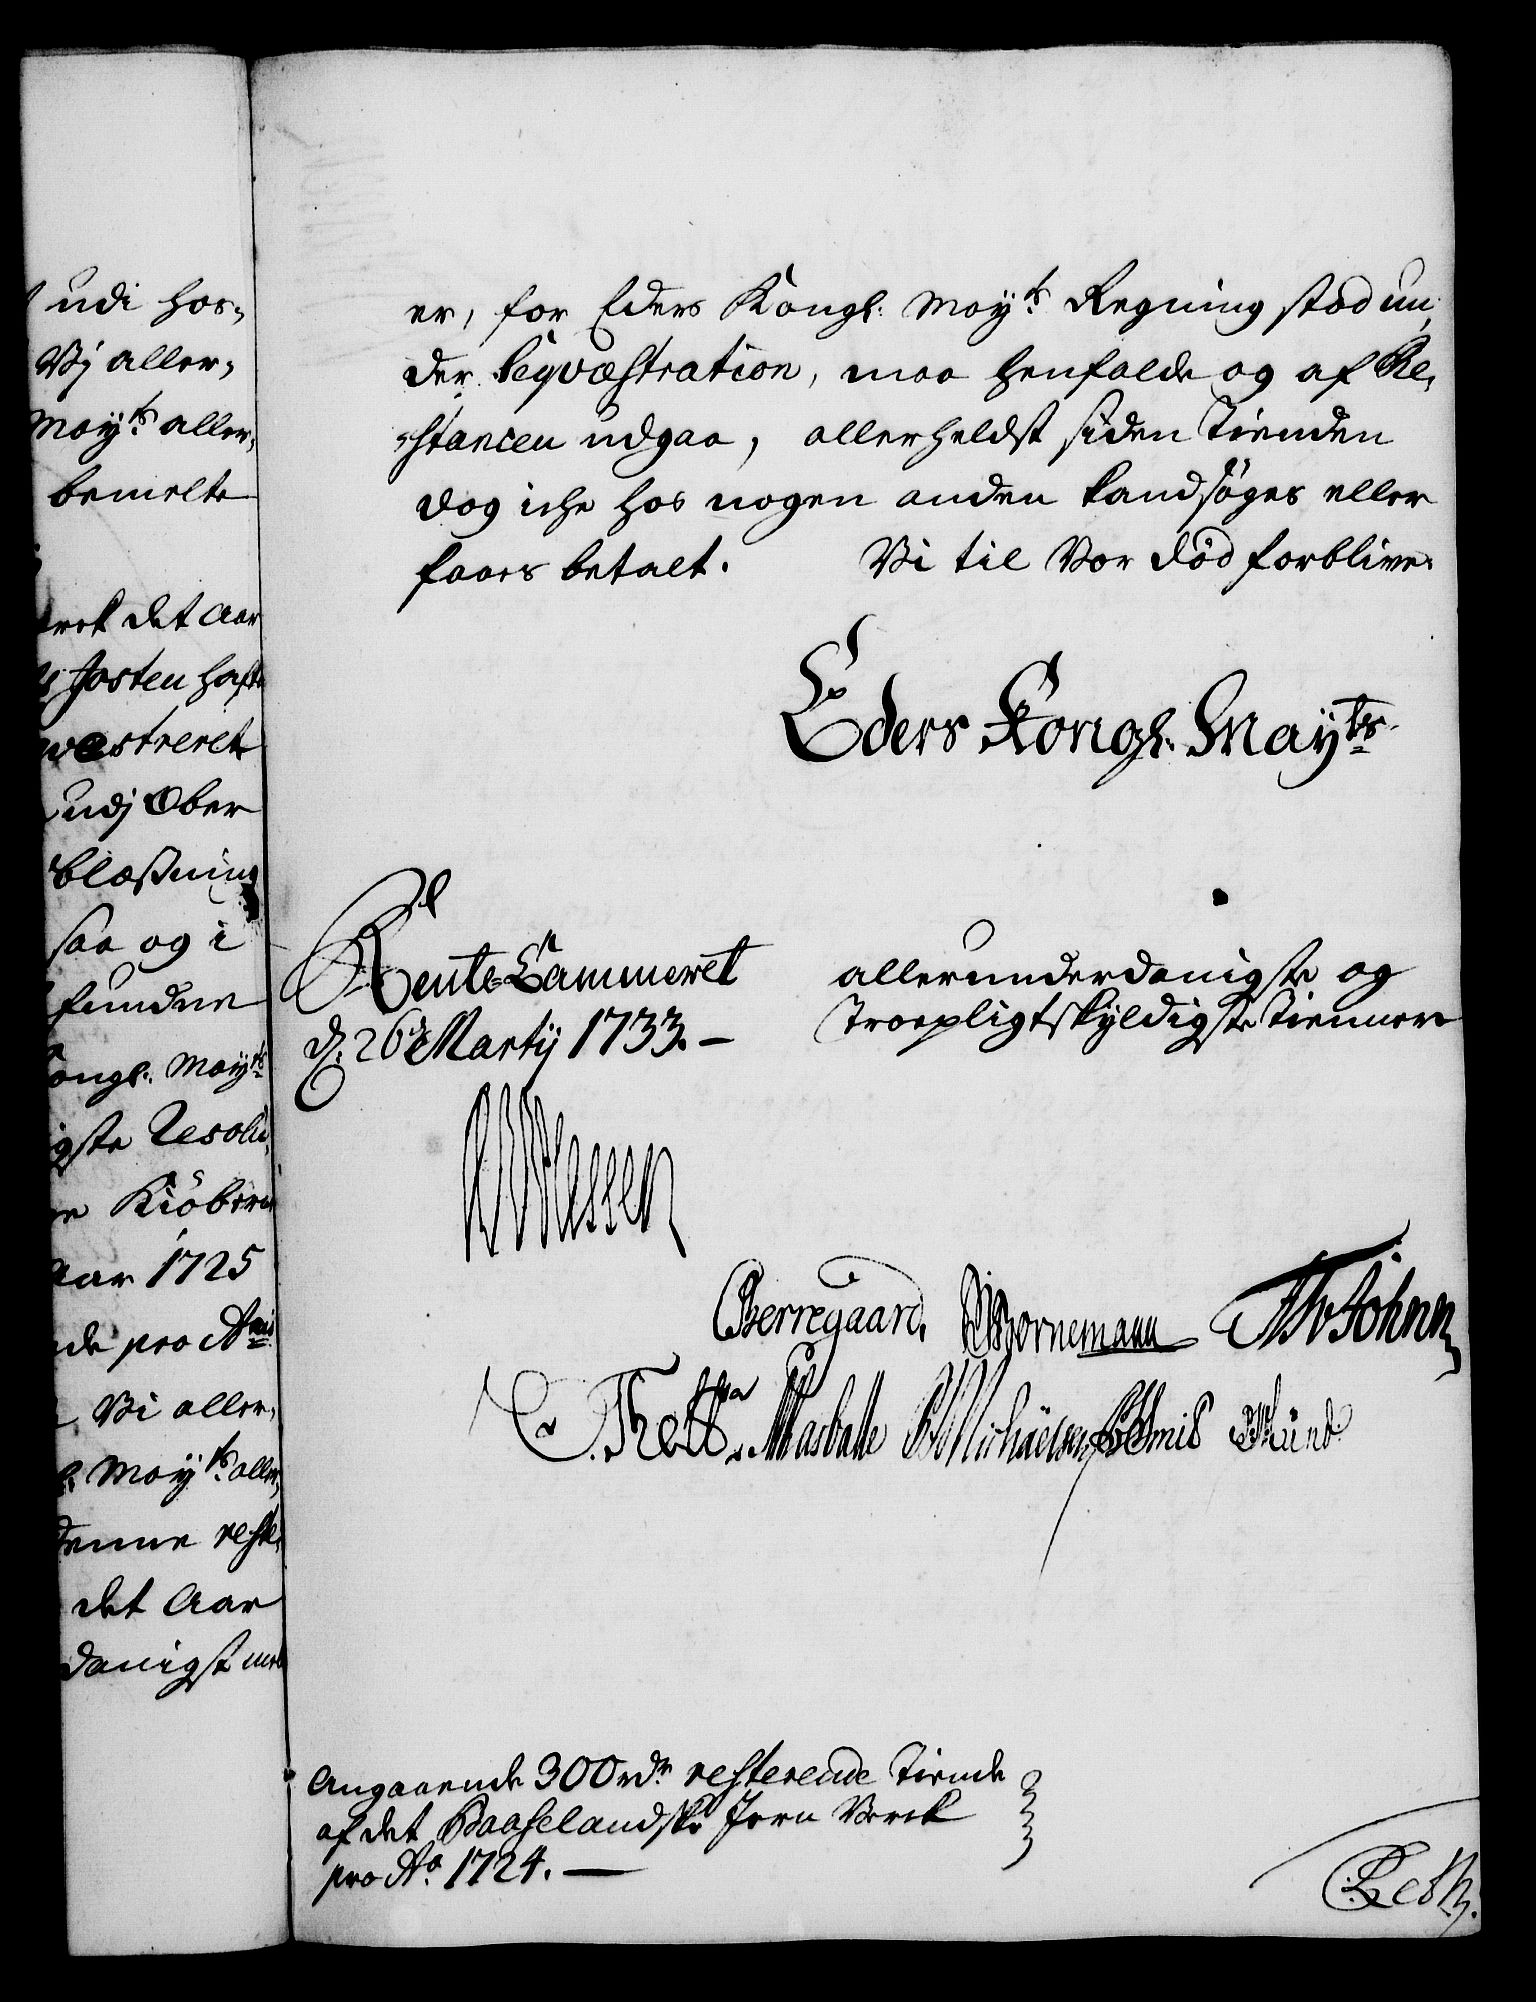 udi hos-
Vj aller-
Mayts aller-
bemelte
det Aar
Josten hafte
væstreret
udj Ober
blæsning
saa og i
fundne
ongl. Mayts
igste Resolu-
Kiöben
Aar 1725
de pro Anno
Vi aller-
Mayts aller-
denne reste-
det Aar
danigst
er, for Eders Kongl: Mayts Regning stod un-
der Seqvæstration, maa henfalde og af Re-
stancen udgaa, allerheldst siden Tienden
dog iche hos nogen anden kand søges eller
faaes betalt. Vi til Vor död forblive
Eders Kongl. Mayts
Rente Cammeret
d: 26de Martij 1733. –
allerunderdanigste og
Troepligtskyldigste Tiennere
Plessen
Berregaard. Bornemann
C. Thelsen Michaelsen Smit
Angaaende 300 rdr resterende Tiende
af det Baaselandske Jern Verck
pro Ao 1724. –